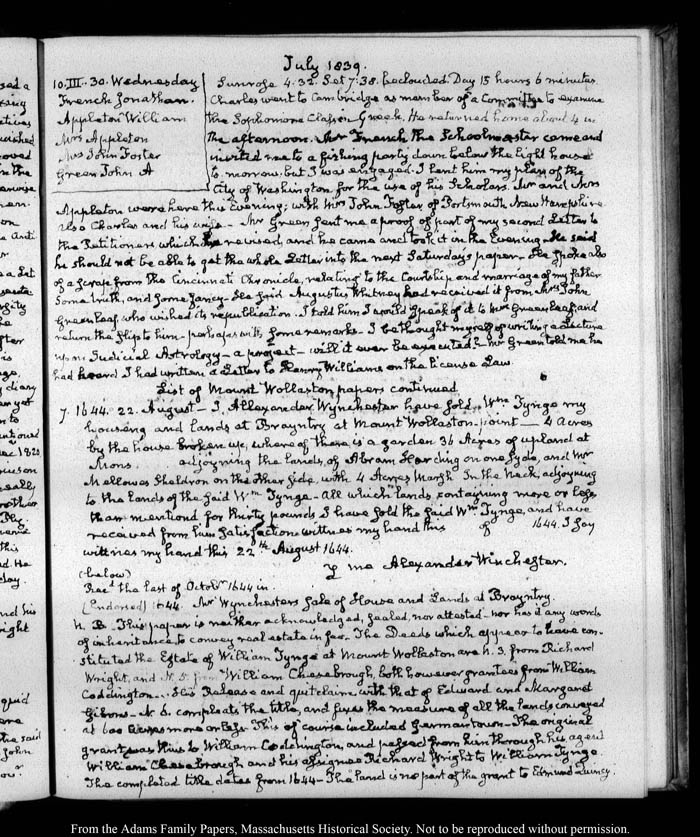 July 1839.
10. III. 30. Wednesday
French Jonathan.
Appleton William
Mrs Appleton
Mrs John Foster
Green John A
Sunrose 4.32. Set 7:38. beclouded. Day 15 hours 6 minutes
Charles went to Cambridge as member of a Committee to examine
the Sophomore Class in Greek. He returned home about 4 in
the afternoon. Mr French the Schoolmaster came and
invited me to a fishing party down below the light house
to-morrow, but I was engaged. I lent him my plan of the
City of Washington for the use of his Scholars. Mr and Mrs
Appleton were here this Evening; with Mrs John Foster of Portsmouth New Hampshire
also Charles and his wife — Mr Green sent me a proof of part of my second Letter to
the Petitioners which he revised, and he came and took it in the Evening. He said
he should not be able to get the whole Letter into the next Saturdays paper. He spoke also
of a scrap from the Cincinnati Chronicle, relating to the Courtship and marriage of my father
Some truth, and some fancy. He said Augustus Whitney had received it from Mrs John
Greenleaf, who wished its republication. I told him I would speak of it to Mrs Greenleaf, and
return the slip to him — perhaps with some remarks. I bethought myself of writing a Lecture
upon Judicial Astrology — a project — will it ever be executed? Mr Green told me he
had heard I had written a Letter to Henry Williams on the license Law.
List of Mount Wollaston papers continued
7. 1644. 22. August — I, Allexander Wynchester have sold Wm Tynge my
housing and lands at Brayntry at Mount Wollaston-point — 4 Acres
by the house broken up, where of there is a garden 36 Acres of upland at
Mons. adjoyning the lands, of Abram Harding on one syde, and Mr
Mellowes Sheldron on the other side, with 4 Acres Marsh In the Neck, adjoyning
to the lands of the said Wm Tynge — All which lands containing more or less
than mentiond for thirty pounds I have sold the said Wm Tynge, and have
received from him satisfaction witness my hand this of 1644. I say
witness my hand this 22th August 1644.
me Alexander Winchester.
(below)
Recd the last of Octobr 1644 in
(Endorsed) 1644. Mr Wynchesters sale of House and Lands at Brayntry.
N. B. This paper is neither acknowledged, sealed, nor attested — nor has it any words
of inheritance to convey real estate in fee. The Deeds which appear to have con-
stituted the Estate of William Tynge at Mount Wollaston are N. 3. from Richard
Wright, and N. 5. from William Cheseborough, both however grantees from William
Coddington. His Release and quitclaim, with that of Edward and Margaret
Gibons — N. 6. compleats the title, and fixes the measure of all the lands conveyed
at 600 Acres more or less. This of course included Germantown — The original
grant was thus to William Coddington, and passed from him through his agent
William Cheseborough and his assignee Richard Wright to William Tynge.
The completed title dates from 1644 — The land is no part of the grant to Edmund Quincy.
From the Adams Family Papers, Massachusetts Historical Society. Not to be reproduced without permission.